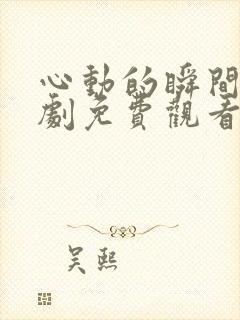 心動的瞬間
劇免費觀看
吴熙